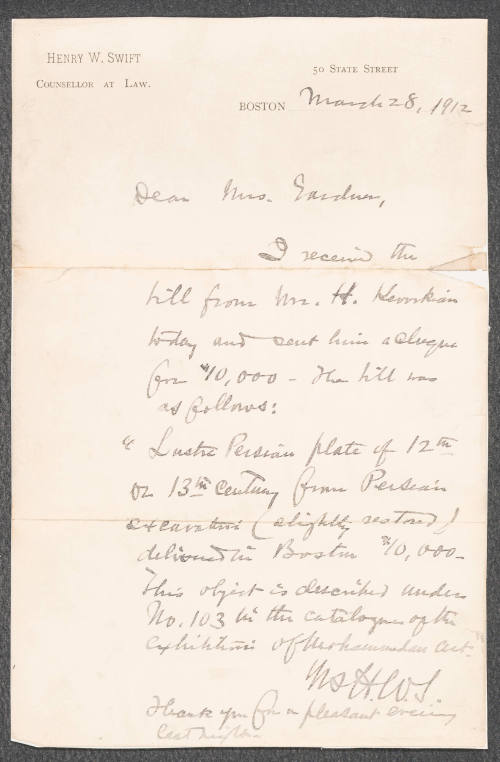 HENRY W. SWIFT
COUNSELLOR AT LAW.
50 STATE STREET
BOSTON March 28, 1912
Dear Mrs. Gardner,
I received the
bill from Mr. H. Kevorkian
today and sent him a cheque
for $10,000 - The bill was
as follows:
" Lustre Persian plate of 12th
or 13th century from Persian
excavations (slightly restored)
delivered in Boston $10,000-
This object is described under
No. 103 in the catalogue of the
exhibition of Mohammedan art."
Yrs H.W.S.
Thank you for a pleasant evening
last night.